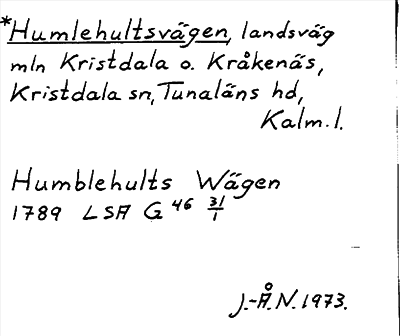 *Humlehultsvägen, landsväg
mln Kristdala o. Kråkenäs,
Kristdala sn, Tunaläns hd,
Kalm. l.
Humblehults Wägen
1789 LSA G 46 31/1
J.-Å.N. 1973.